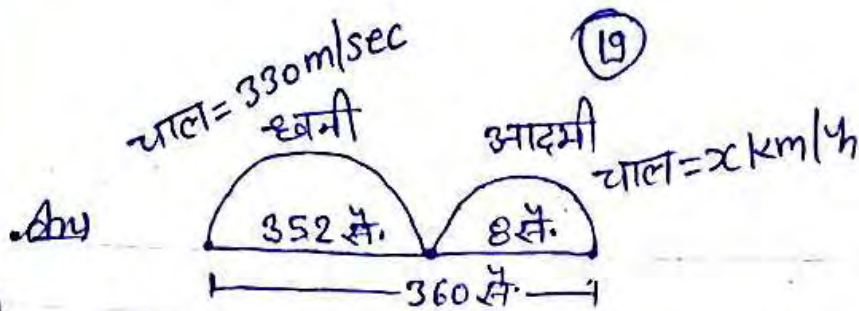 19
चाल = 330m/sec
ध्वनी
आदमी
चाल = x km/h
Ans
352 सै.
8 सै.
360 सै.